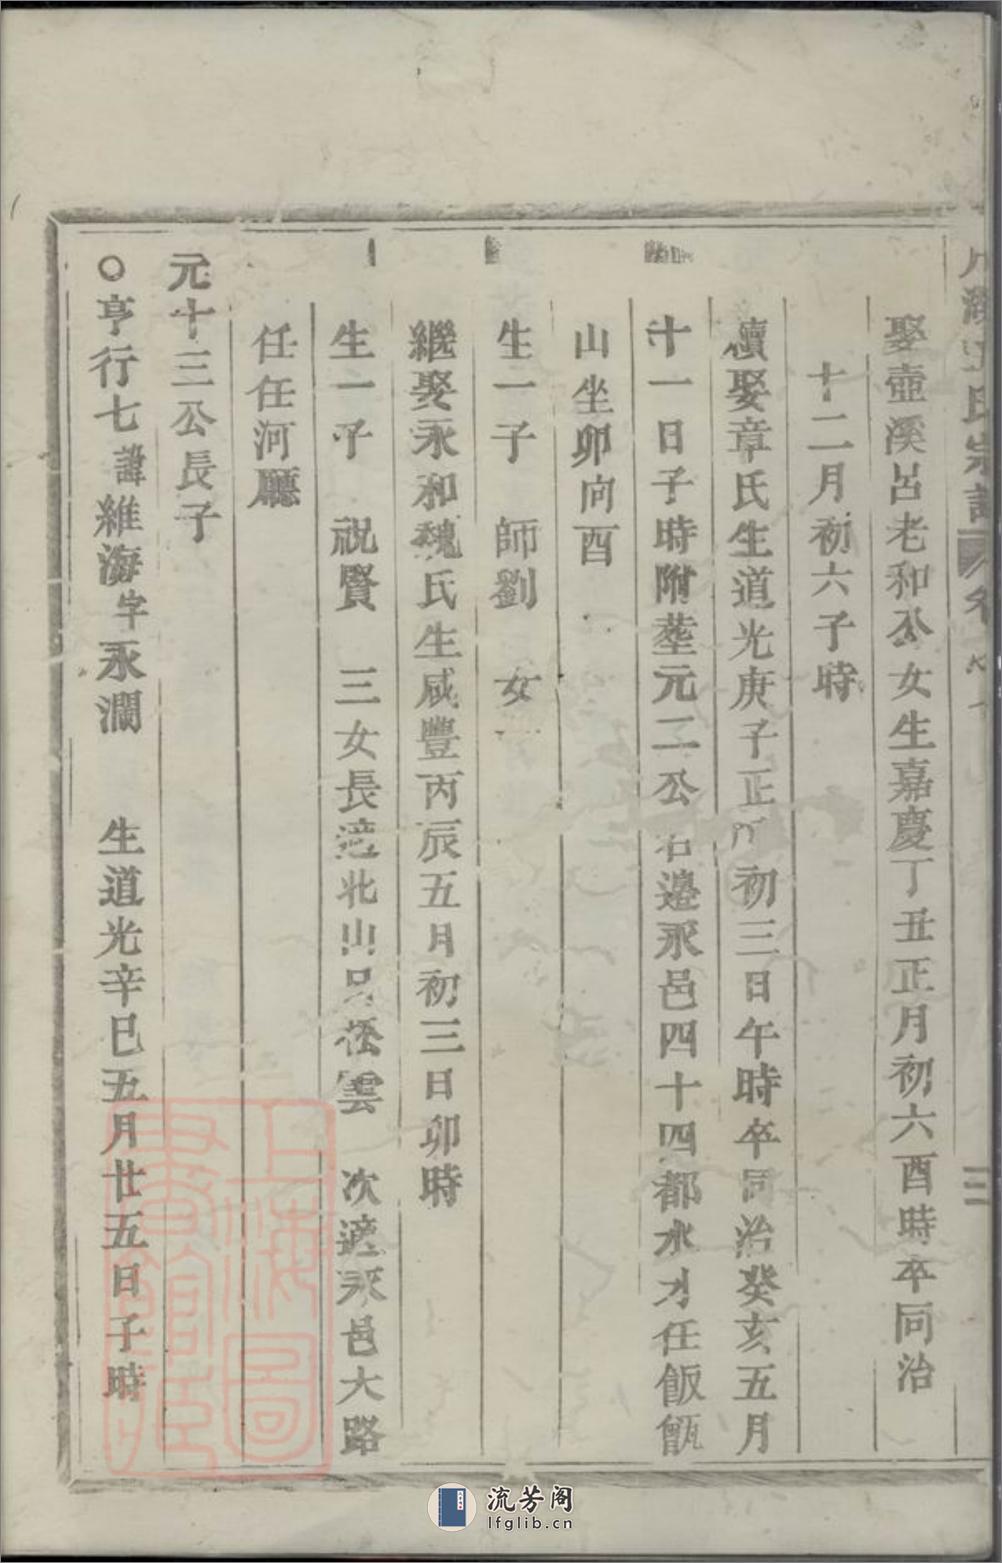 氏宗譜
三
娶壺溪呂老和公女生嘉慶丁丑正月初六酉時卒同治
十二月初六子時
續娶章氏生道光庚子正月初三日午時卒同治癸亥五月
十一日子時附塟元二公右邉永邑四十四都水才任飯甑
山坐卯向酉
生一子 師劉 女一
繼娶永和魏氏生咸豐丙辰五月初三日卯時
生一子 祝賢 三女長適北山呂松雲 次適永邑大路
任任河廳
元十三公長子
○亨行七諱維海字永瀾 生道光辛巳五月廿五日子時
上海圖書館藏
流芳阁
lfglib.cn